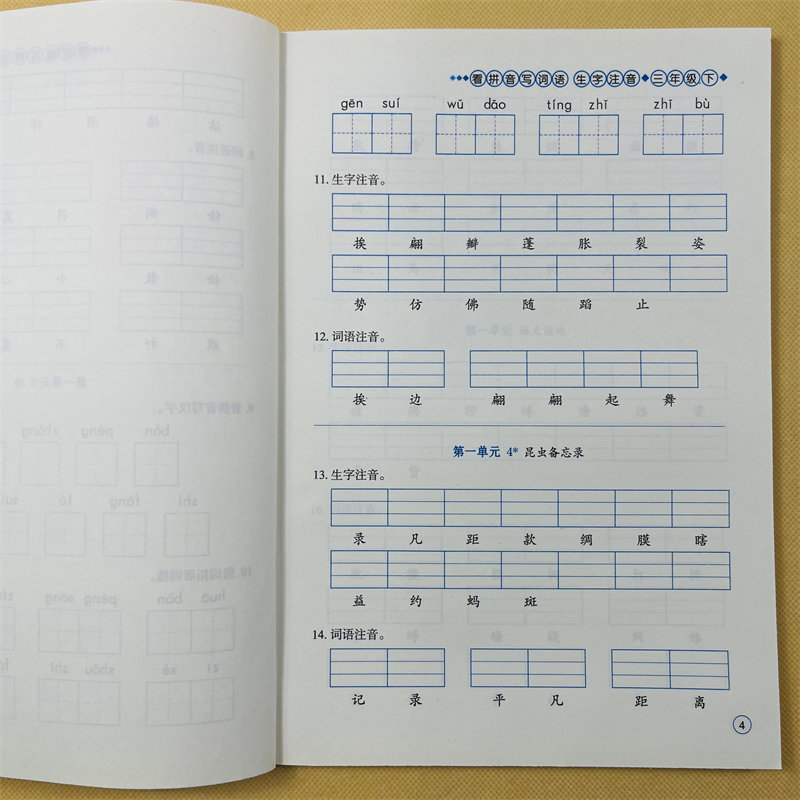 看拼音写词语 生字注音 三年级下
gēn suí wǔ dǎo tíng zhǐ zhǐ bù
11. 生字注音。
挨 翩 瓣 蓬 胀 裂 姿
势 仿 佛 随 蹈 止
12. 词语注音。
挨 边 翩 翩 起 舞
第一单元 4* 昆虫备忘录
13. 生字注音。
录 凡 距 款 绸 膜 瞎
益 约 蚂 斑
14. 词语注音。
记 录 平 凡 距 离
4